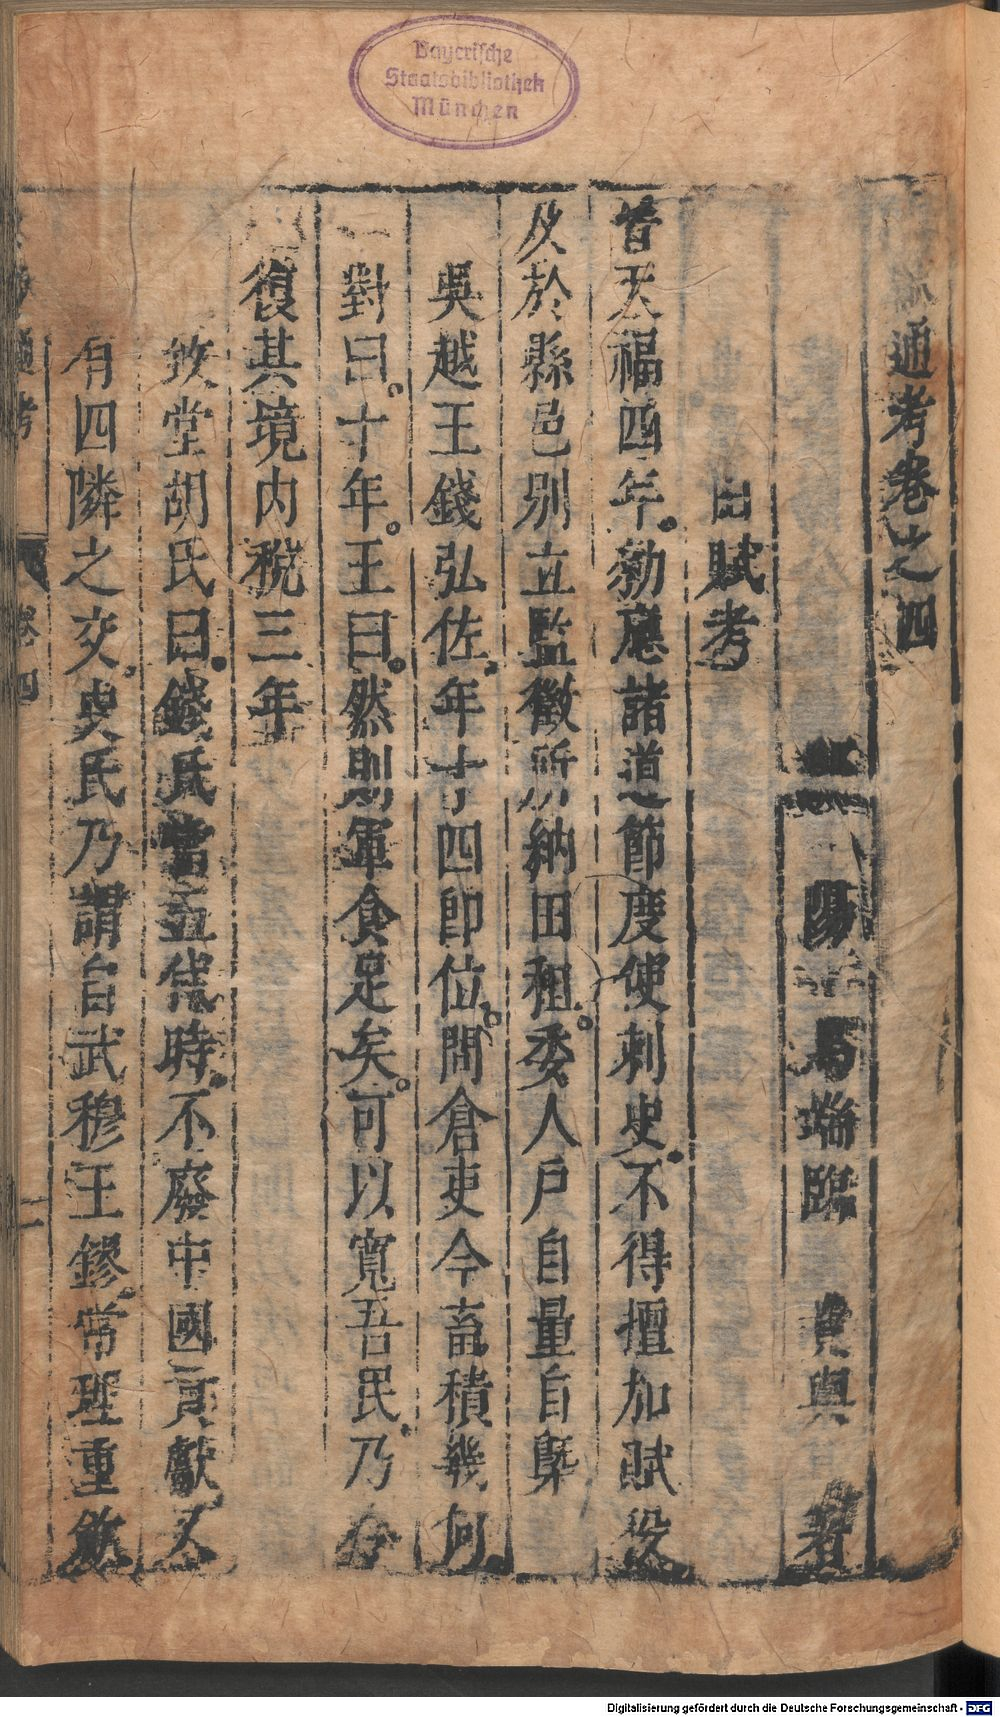 Bayerische
Staatsbibliothek
München
通考卷之四
陽 馬端臨 貴與 著
田賦考
晋天福四年。勑應諸道節度使刺史。不得擅加賦役
及於縣邑别立監徵所納田租。委人戶自量自槩
吳越王錢弘佐。年十四即位。問倉吏今畜積幾何
對曰。十年。王曰。然則軍食足矣。可以寬吾民。乃命
復其境内稅三年
致堂胡氏曰。錢氏當五代時。不廢中國貢獻又
有四隣之交。史氏乃謂自武穆王鏐。常重斂
通考
卷四
一
Digitalisierung gefördert durch die Deutsche Forschungsgemeinschaft - DFG